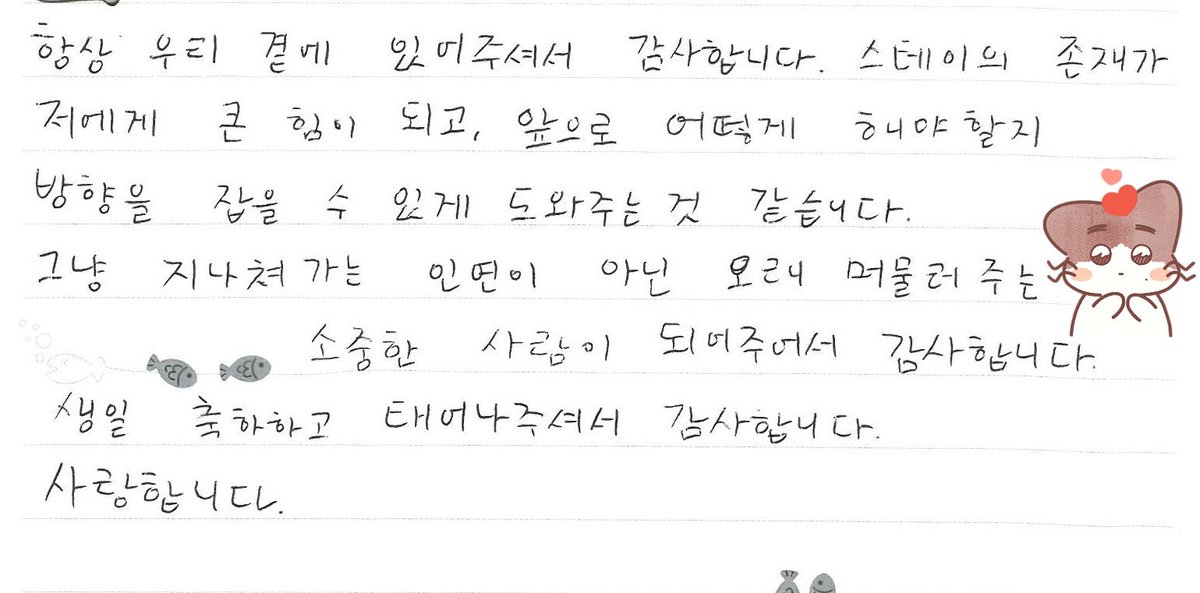 항상 우리 곁에 있어주셔서 감사합니다. 스테이의 존재가
저에게 큰 힘이 되고, 앞으로 어떻게 해야할지
방향을 잡을 수 있게 도와주는 것 같습니다.
그냥 지나쳐 가는 인연이 아닌 오래 머물러 주는
소중한 사람이 되어주어서 감사합니다.
생일 축하하고 태어나주셔서 감사합니다.
사랑합니다.